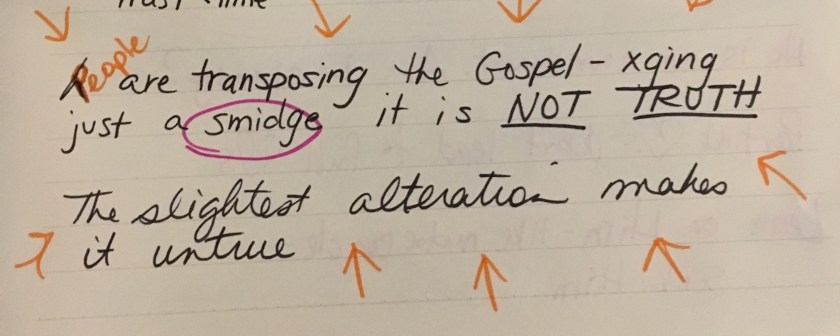 People are transposing the Gospel - xging
just a smidge it is NOT TRUTH
The slightest alteration makes
it untrue